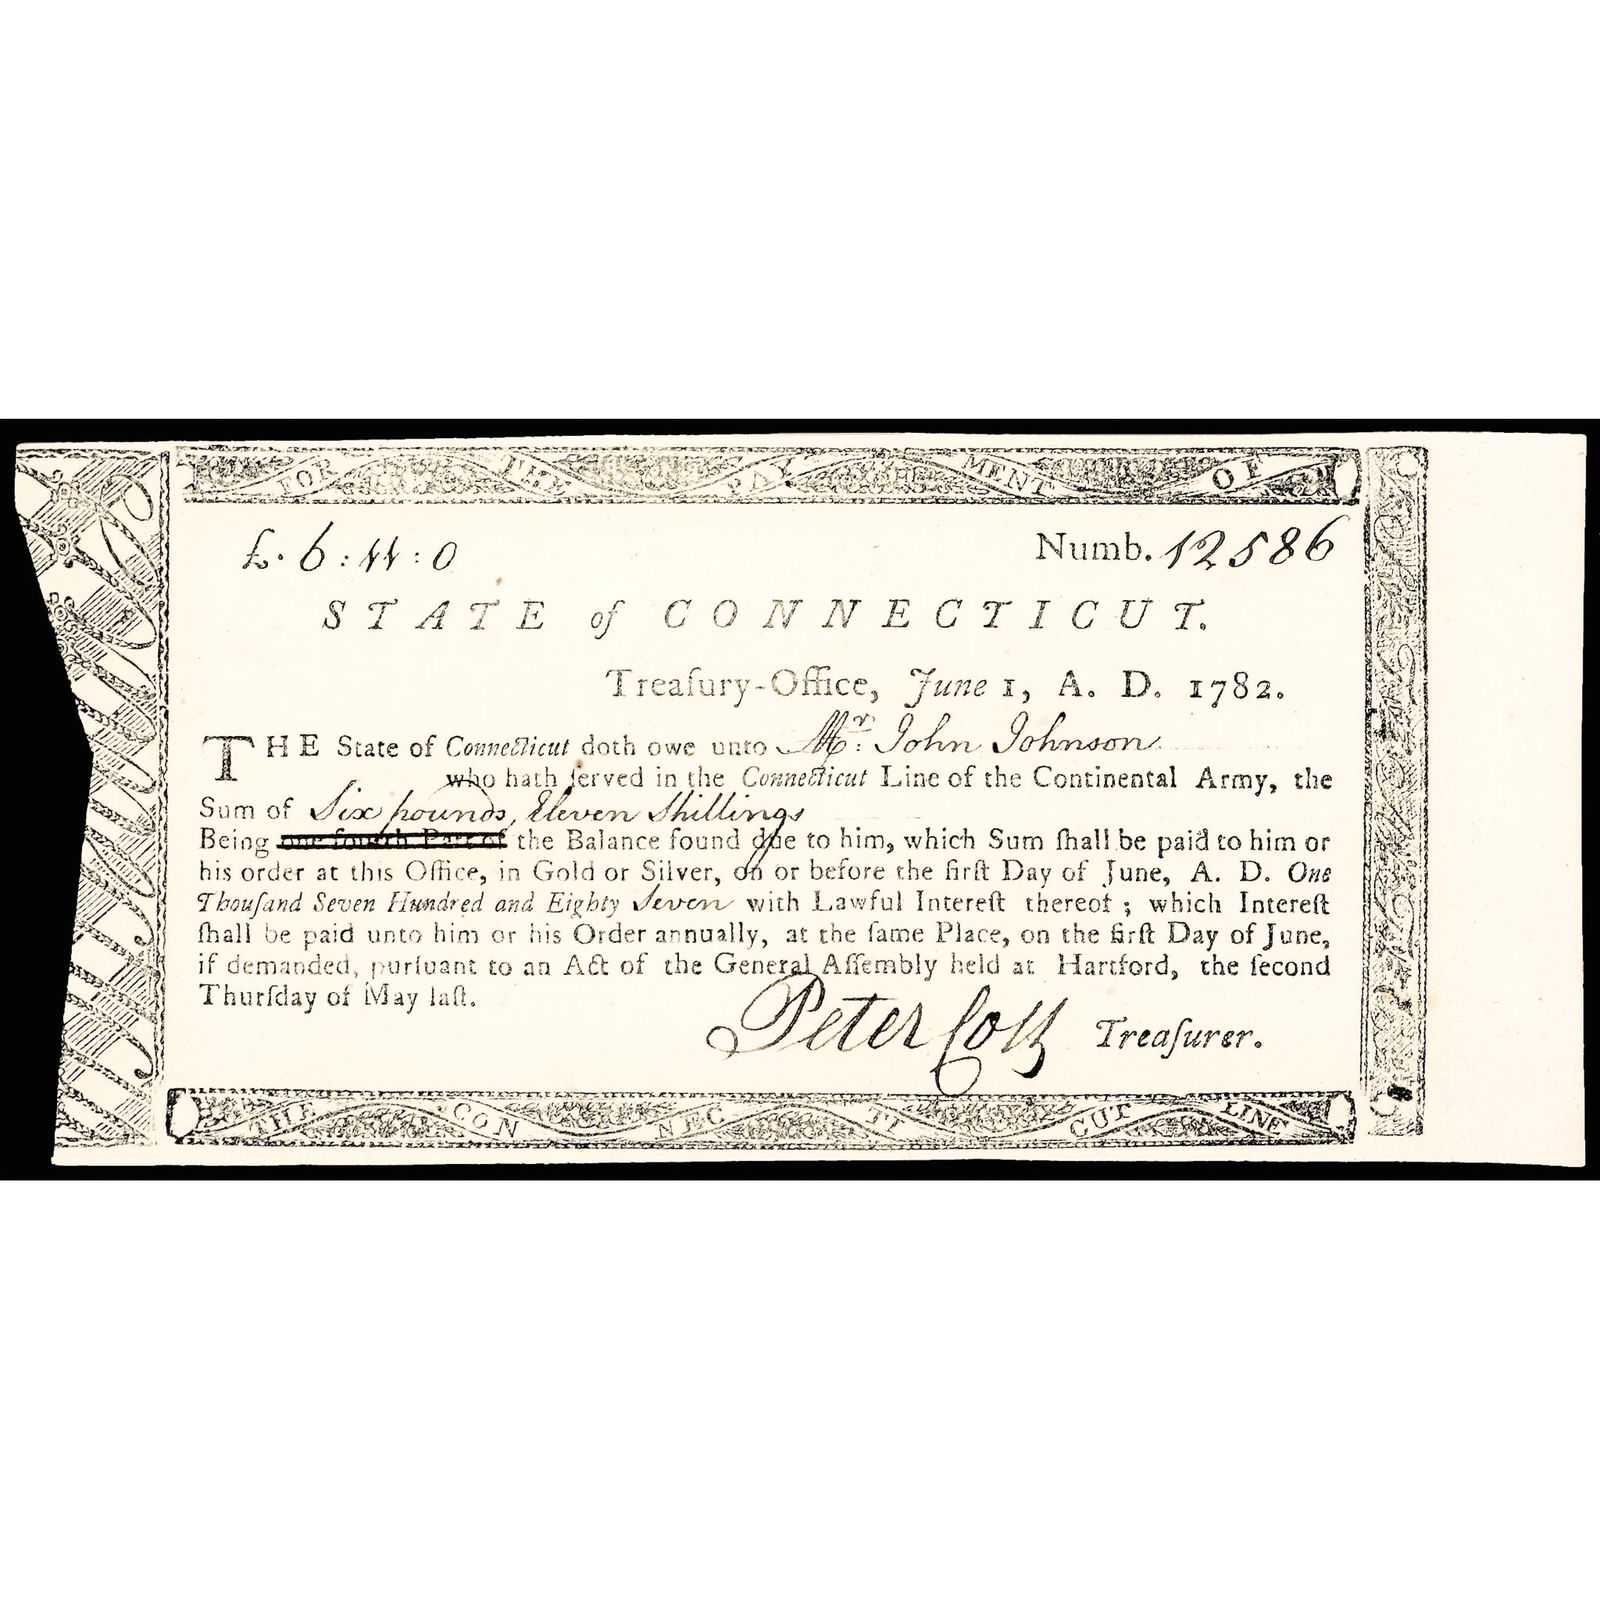 FOR THE PAY MENT OF
£. 6 : 11 : 0 Numb. 12586
STATE of CONNECTICUT.
Treaſury-Office, June 1, A. D. 1782.
THE State of Connecticut doth owe unto Mr: John Johnson
who hath ſerved in the Connecticut Line of the Continental Army, the
Sum of Six pounds, Eleven Shillings
Being one fourth Part of the Balance found due to him, which Sum ſhall be paid to him or
his order at this Office, in Gold or Silver, on or before the firſt Day of June, A. D. One
Thouſand Seven Hundred and Eighty Seven with Lawful Intereſt thereof ; which Intereſt
ſhall be paid unto him or his Order annually, at the ſame Place, on the firſt Day of June,
if demanded, purſuant to an Act of the General Aſſembly held at Hartford, the ſecond
Thurſday of May laſt.
Peter Colt Treaſurer.
THE CON NEC TI CUT LINE